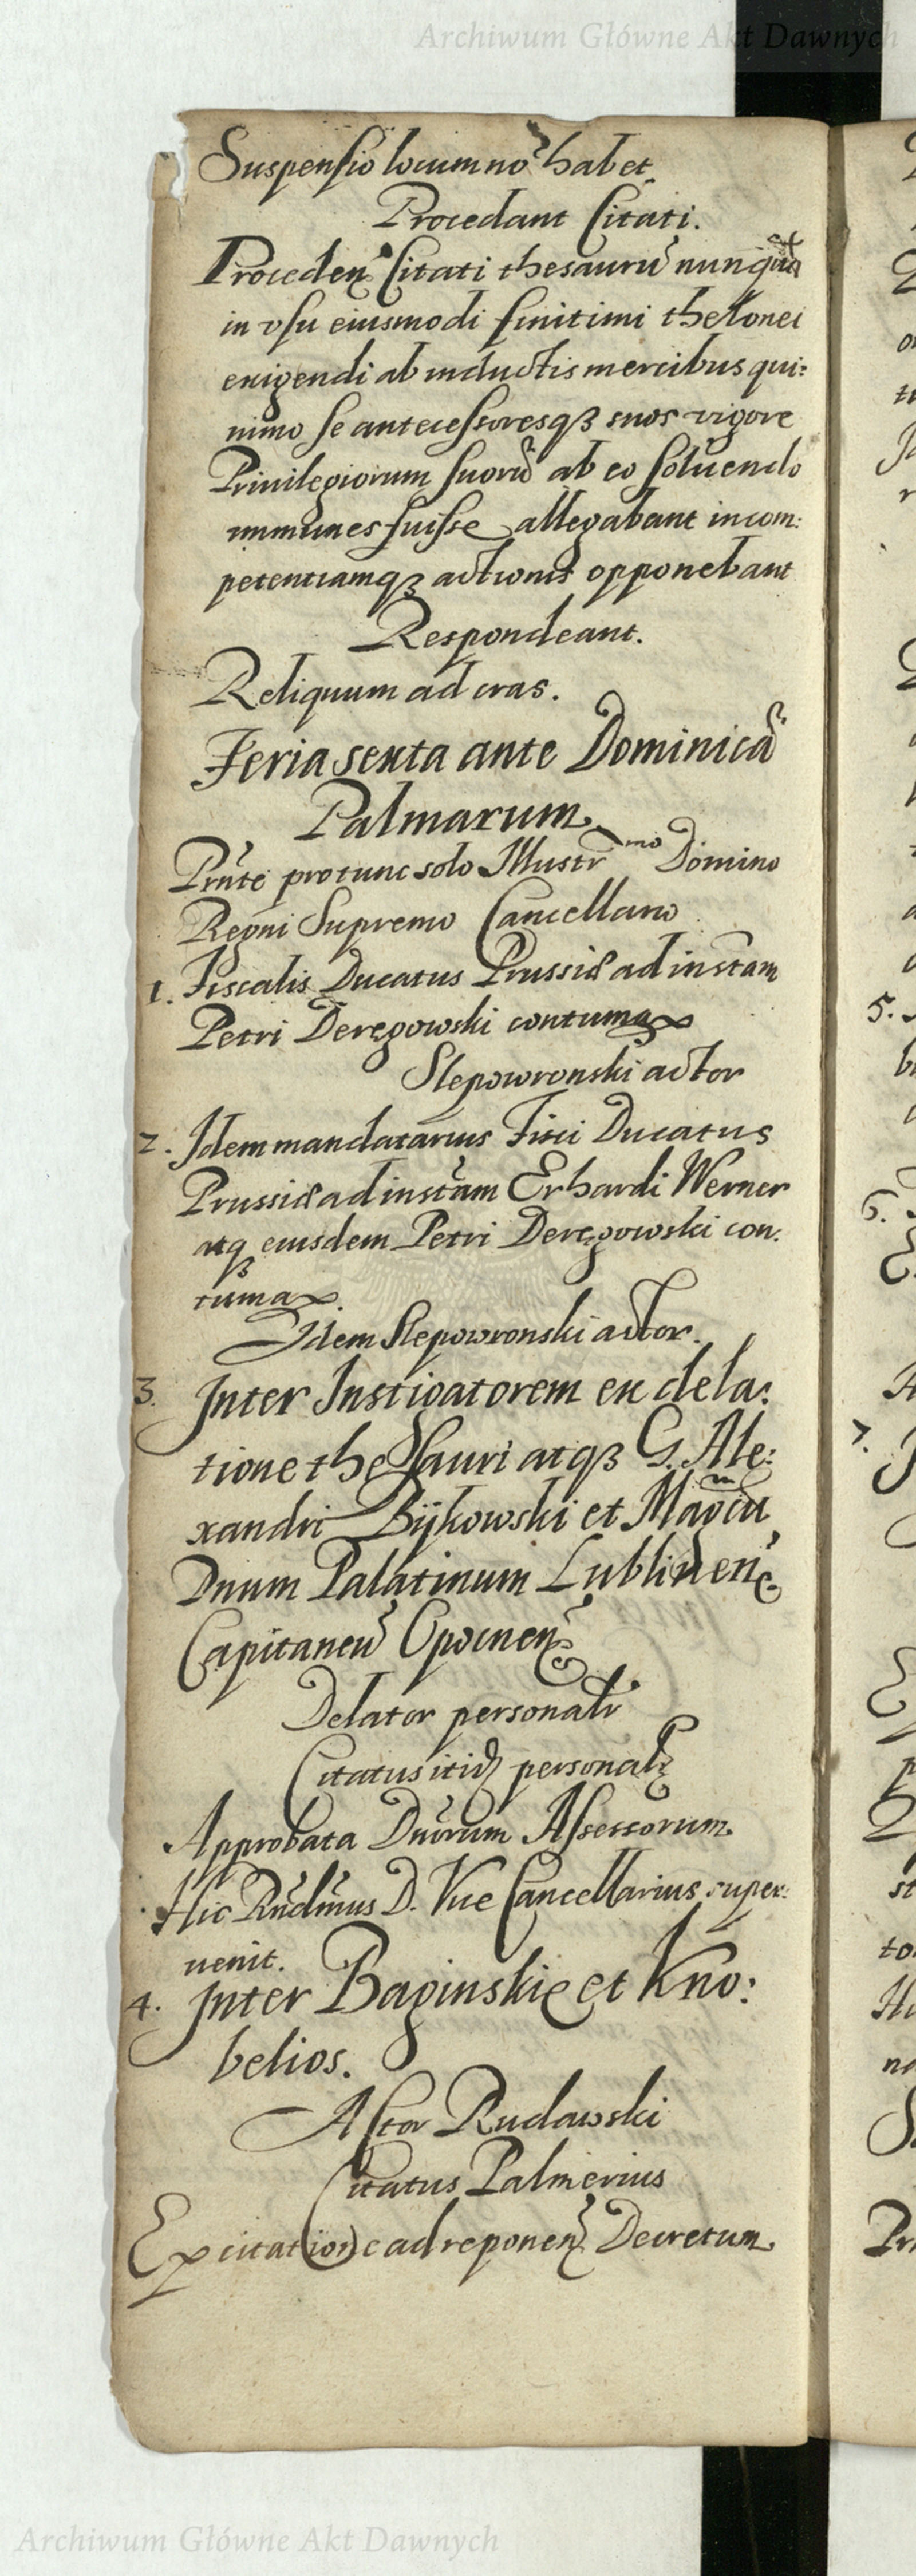 Archiwum Główne Akt Dawnych
Suspensio locum nõ habet.
Procedant Citati.
Proceden̄ Citati thesaurũ nunquã
in vsu eiusmodi finitimi thelonei
exigendi ab inductis mercibus qui:
nimo se antecessoresqȝ suos vigore
Priuilegiorum suorũ ab eo soluendo
immunes fuisse allegabant incom:
petentiamqȝ actionis opponebant
Respondeant.
Reliquum ad cras.
Feria sexta ante Dominicã
Palmarum
Pr̃nte pro tunc solo Illustr̃mo Domino
Regni Supremo Cancellario
1. Fiscalis Ducatus Prussiæ ad instam
Petri Deręgowski contumax
Slepowronski actor
2. Idem mandatarius Fisci Ducatus
Prussiæ ad instam Erhardi Werner
atqȝ eiusdem Petri Deręgowski con:
tumax.
Idem Slepowronski actor.
3. Inter Instigatorem ex dela:
tione thesauri atqȝ G. Ale:
xandri Bÿkowski et Magcũ
Dnum Palatinum Lublinen̄
Capitaneũ Opocnen̄
Delator personalr
Citatus itid personalr
Approbata Dnorum Assessorum
Hic Rndmus D. Vice Cancellarius super:
uenit.
4. Inter Baginskie et Kno:
belios.
Actor Rudawski
Citatus Palmerius
Ex citatione ad reponen̄ Decretum
5.
6.
7.
Archiwum Główne Akt Dawnych